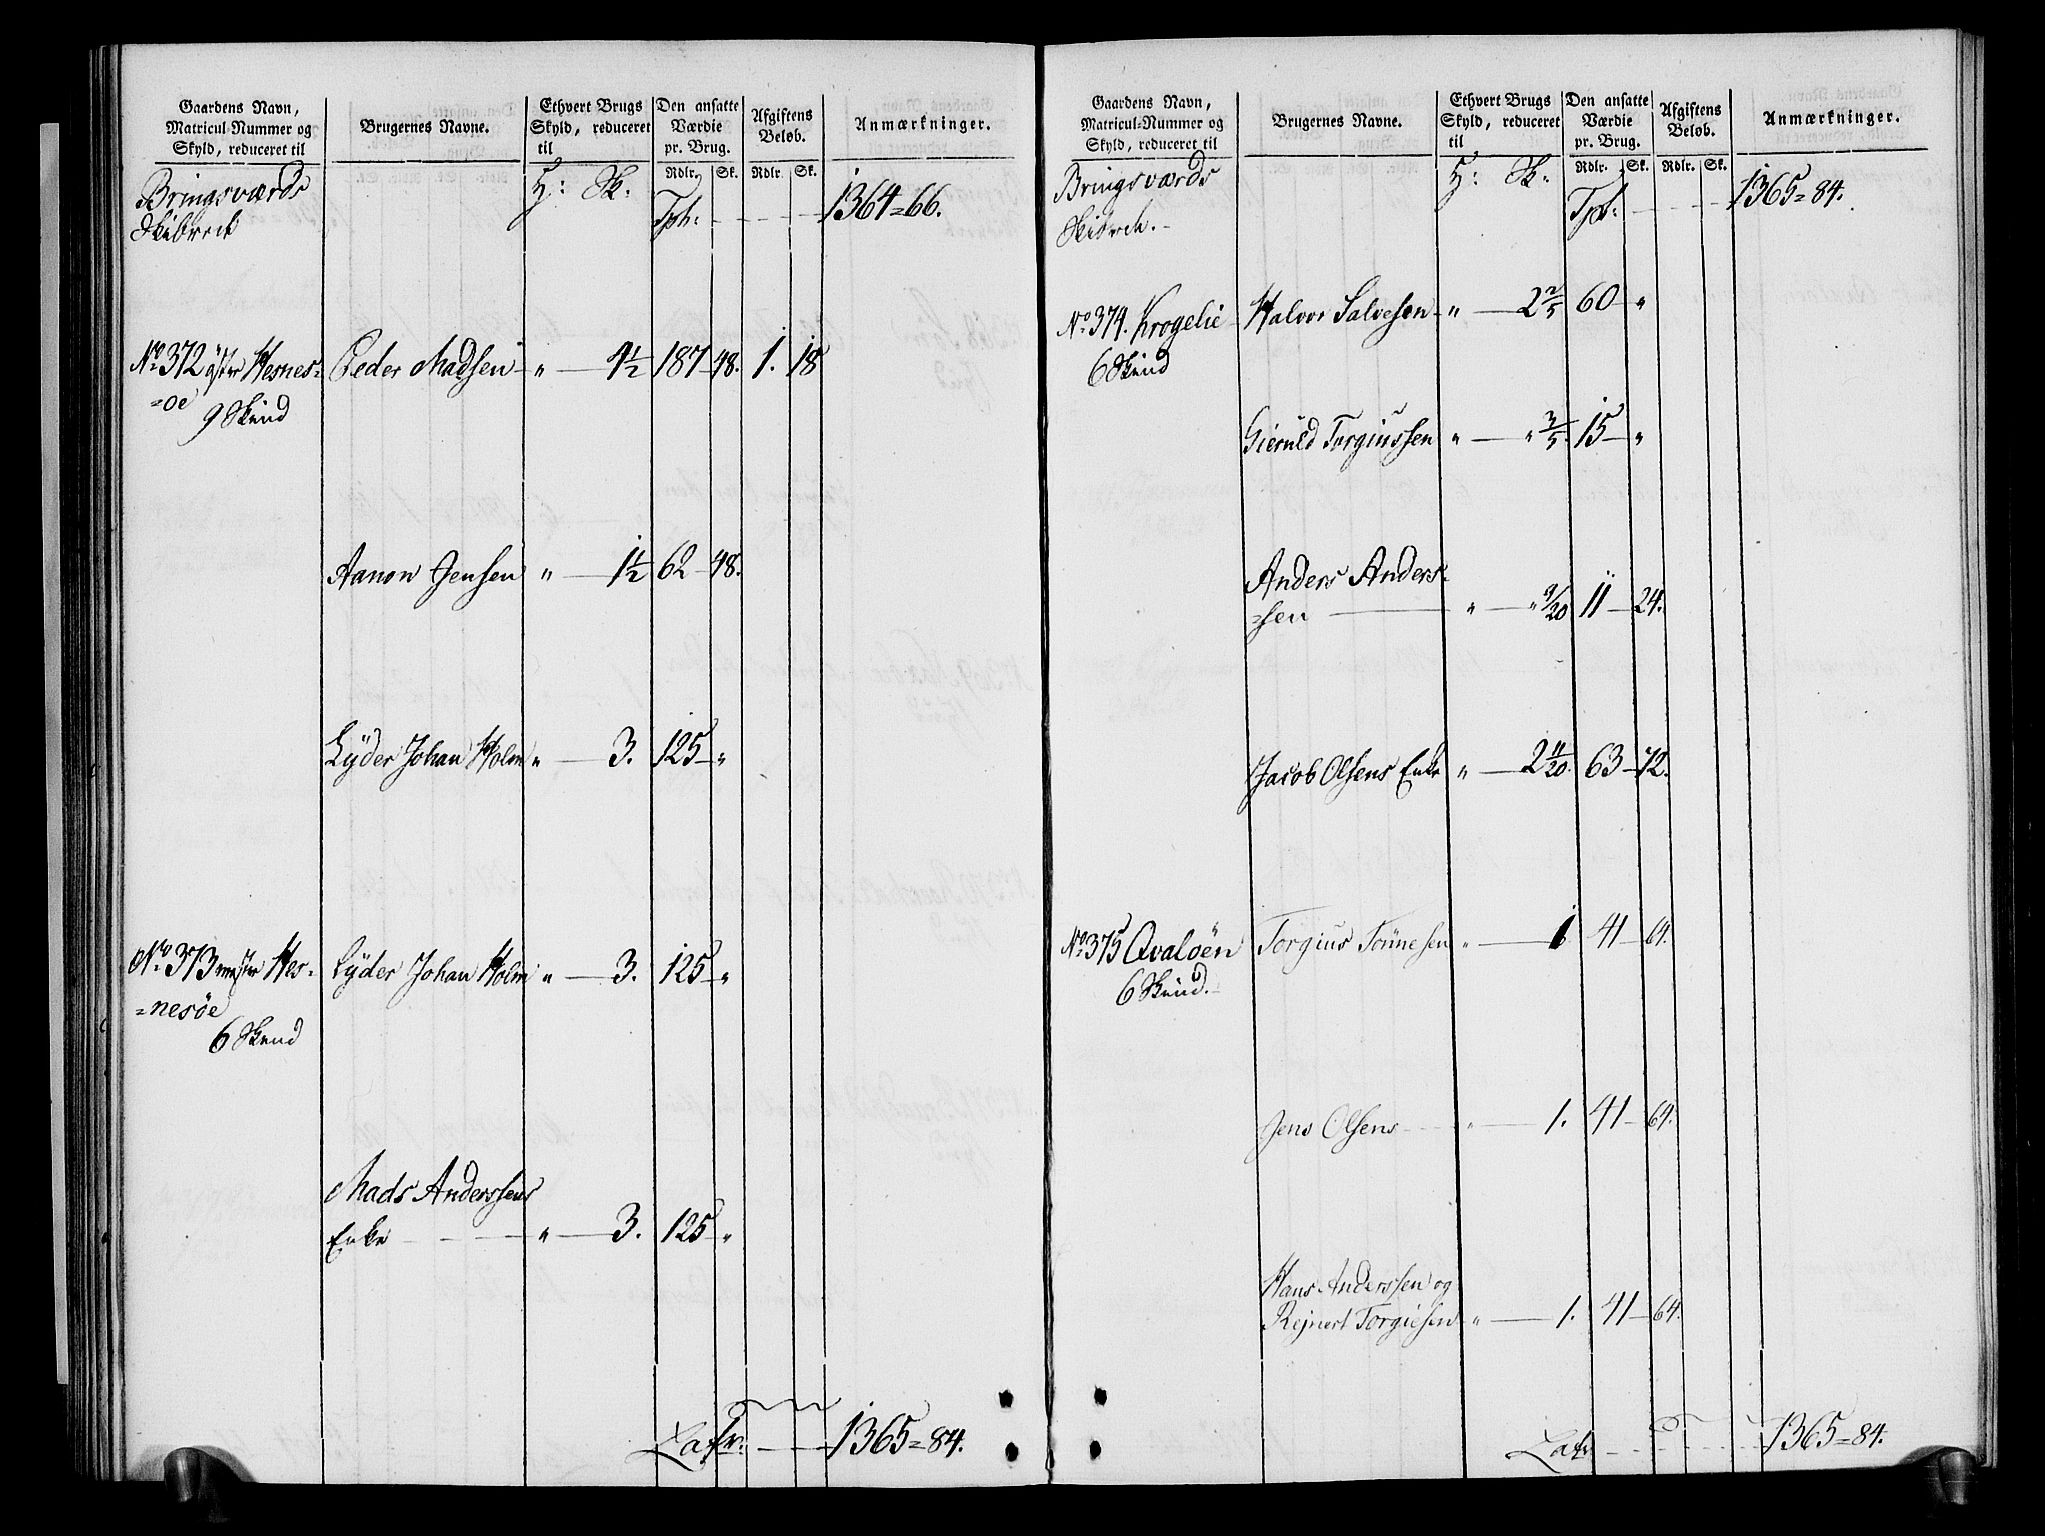 Gaardens Navn, Matricul-Nummer og Skyld, reduceret til
Brugernes Navne.
Ethvert Brugs Skyld, reduceret til
Den ansatte Værdie pr. Brug.
Afgiftens Beløb.
Anmærkninger.
Rdlr. Sk. Rdlr. Sk.
Bringsværds H: Sk: Tpt: 1364=66.
Skibreck
No 372 öster Hesnes= Peder Madsen „ 4½ 187 48. 1. 18
=oe
9 Skind
Aanon Jensen „ 1½ 62 48.
Lÿder Johan Holm „ 3. 125 „
No 373 vester Hes= Lÿder Johan Holm „ 3. 125 „
=nesöe
6 Skind
Mads Anderssens
Enke „ 3. 125 „
Latr: 1365=84.
Gaardens Navn, Matricul-Nummer og Skyld, reduceret til
Brugernes Navne.
Ethvert Brugs Skyld, reduceret til
Den ansatte Værdie pr. Brug.
Afgiftens Beløb.
Anmærkninger.
Rdlr. Sk. Rdlr. Sk.
Bringsværds H: Sk: Tpt: 1365=84.
Skibreck.
No 374. Krogelie Halvor Salvesen „ 2 2/5 60 „
6 Skind
Gieruld Torgiussen „ „ 3/5 15 „
Anders Anders=
=sen „ „ 9/20 11 24.
Jacob Olsens Enke „ 2 11/20. 63 72.
No 375 Qvaløen Torgius Tönnesen „ 1 41 64.
6 Skind.
Jens Olsens „ 1. 41 64.
Hans Anderssen og
Rejnert Torgiesen „ 1. 41 64.
Latr 1365=84.